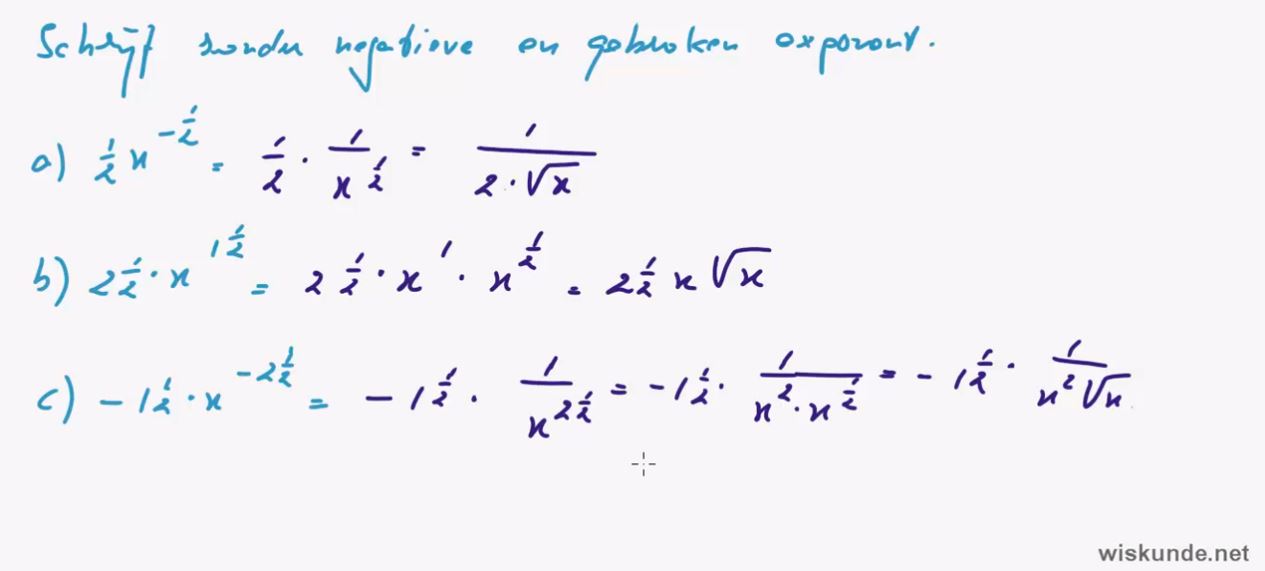 Schrijf zonder negatieve en gebroken exponent.
a) ½x^(-½) = ½ · 1/x^(½) = 1/(2·√x)
b) 2½ · x^(1½) = 2½ · x^1 · x^(½) = 2½ x√x
c) -1½ · x^(-2½) = -1½ · 1/x^(2½) = -1½ · 1/(x²·x^(½)) = -1½ · 1/(x²√x)
wiskunde.net